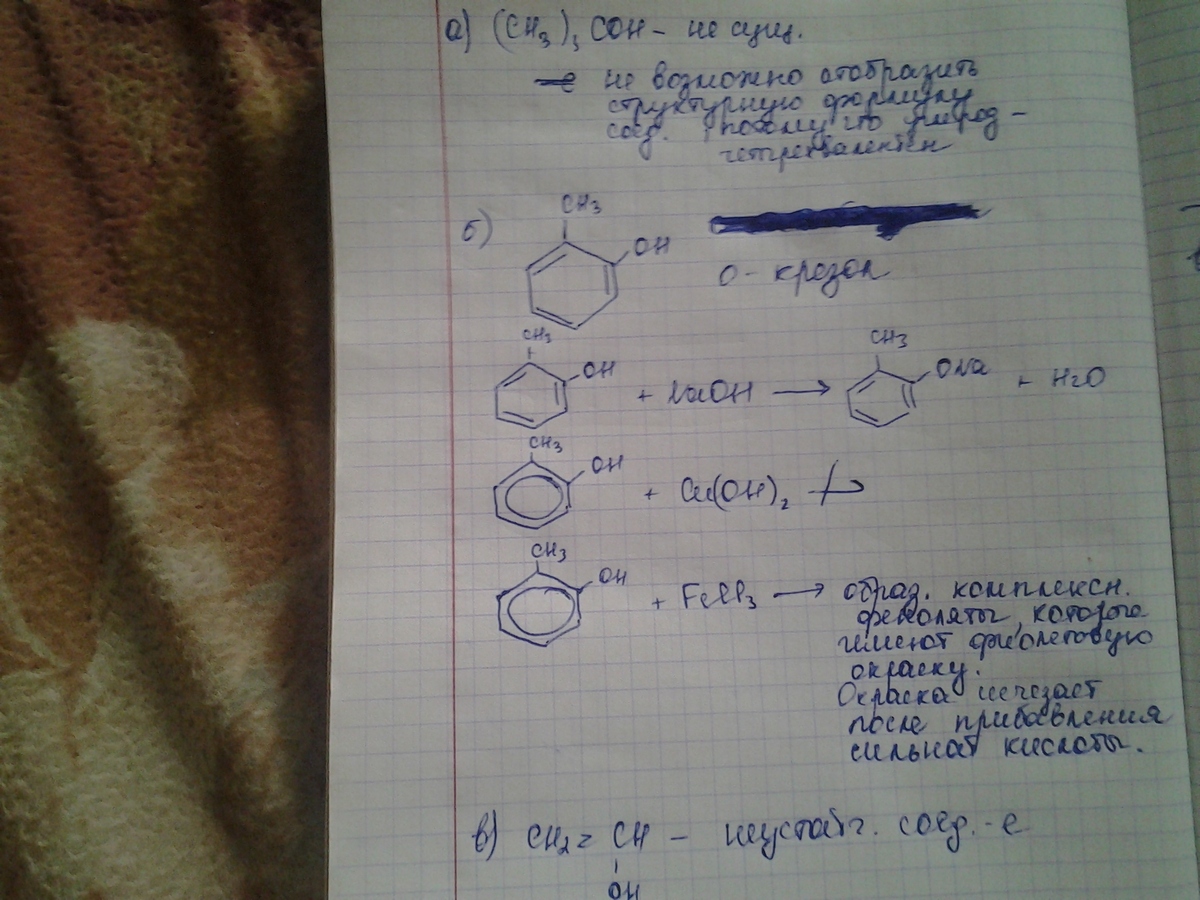 а) (CH₃)₃COH – не сущ.
не возможно отобразить
структурную формулу
соед., потому что углерод –
четырехвалентен
б) CH₃
OH
о - крезол
CH₃
OH + NaOH → CH₃ ONa + H₂O
CH₃
OH + Cu(OH)₂ ↛
CH₃
OH + FeCl₃ → образ. комплексн.
феноляты, которые
имеют фиолетовую
окраску.
Окраска исчезает
после прибавления
сильной кислоты.
в) CH₂ = CH – неустойч. соед. - е
OH